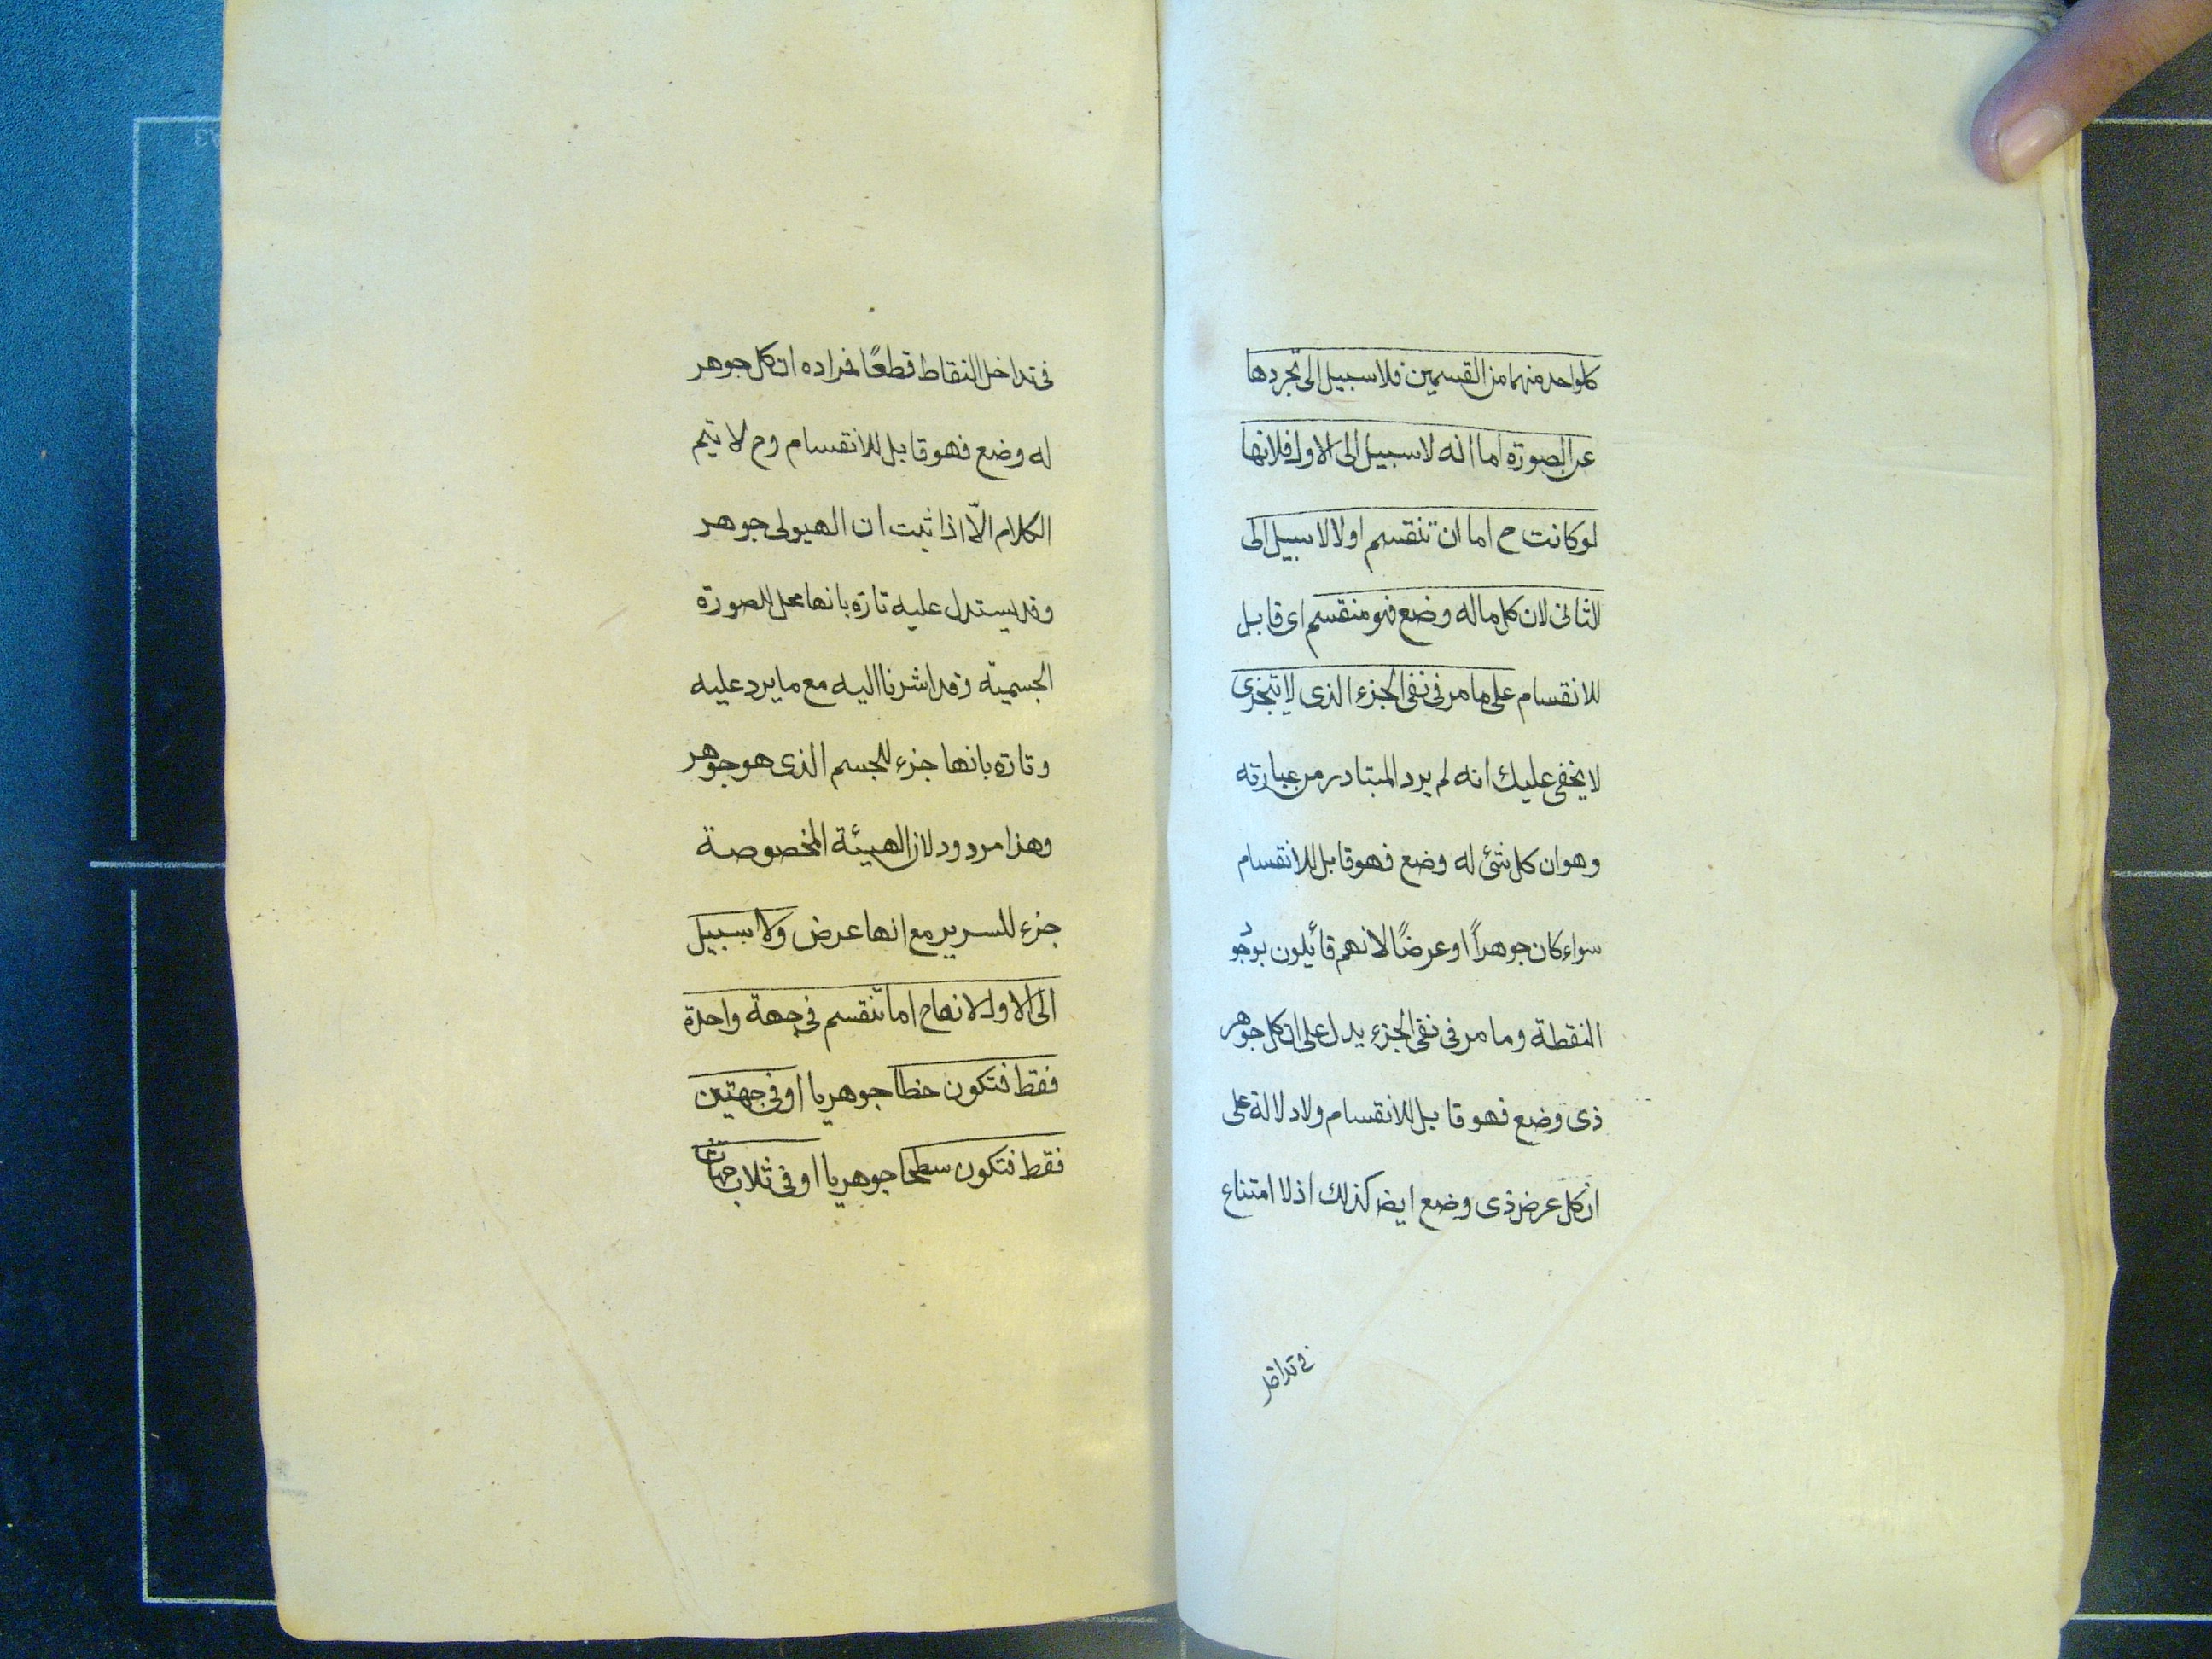 كلواحد منهما من القسمين فلا سبيل الى تجردها
عن الصورة اما انه لا سبيل الى الاول فلانها
لو كانت ح اما ان تنقسم اولا لا سبيل الى
الثانى لان كل ماله وضع فهو منقسم اى قابل
للانقسام على ما مر فى نفى الجزء الذى لا يتجزى
لا يخفى عليك انه لم يرد المتبادر من عبارته
وهو ان كل شئ له وضع فهو قابل للانقسام
سواء كان جوهراً او عرضًا لانهم قائلون بوجود
النقطة وما مر فى نفى الجزء يدل على ان كل جوهر
ذى وضع فهو قابل للانقسام ولا دلالة على
ان كل عرض ذى وضع ايض كذلك اذ لا امتناع
فى تداخل
فى تداخل النقاط قطعًا فمراده ان كل جوهر
له وضع فهو قابل للانقسام وح لا يتم
الكلام الّا اذا ثبت ان الهيولى جوهر
وقد يستدل عليه تارة بانها محل للصورة
الجسمية وقد اشرنا اليه مع ما يرد عليه
وتارة بانها جزء للجسم الذى هو جوهر
وهذا مردود لان الهيئة المخصوصة
جزء للسرير مع انها عرض ولا سبيل
الى الاول لانها ح اما تنقسم فى جهة واحدة
فقط فتكون خطا جوهريا او فى جهتين
فقط فتكون سطحا جوهريا او فى ثلاث جهات